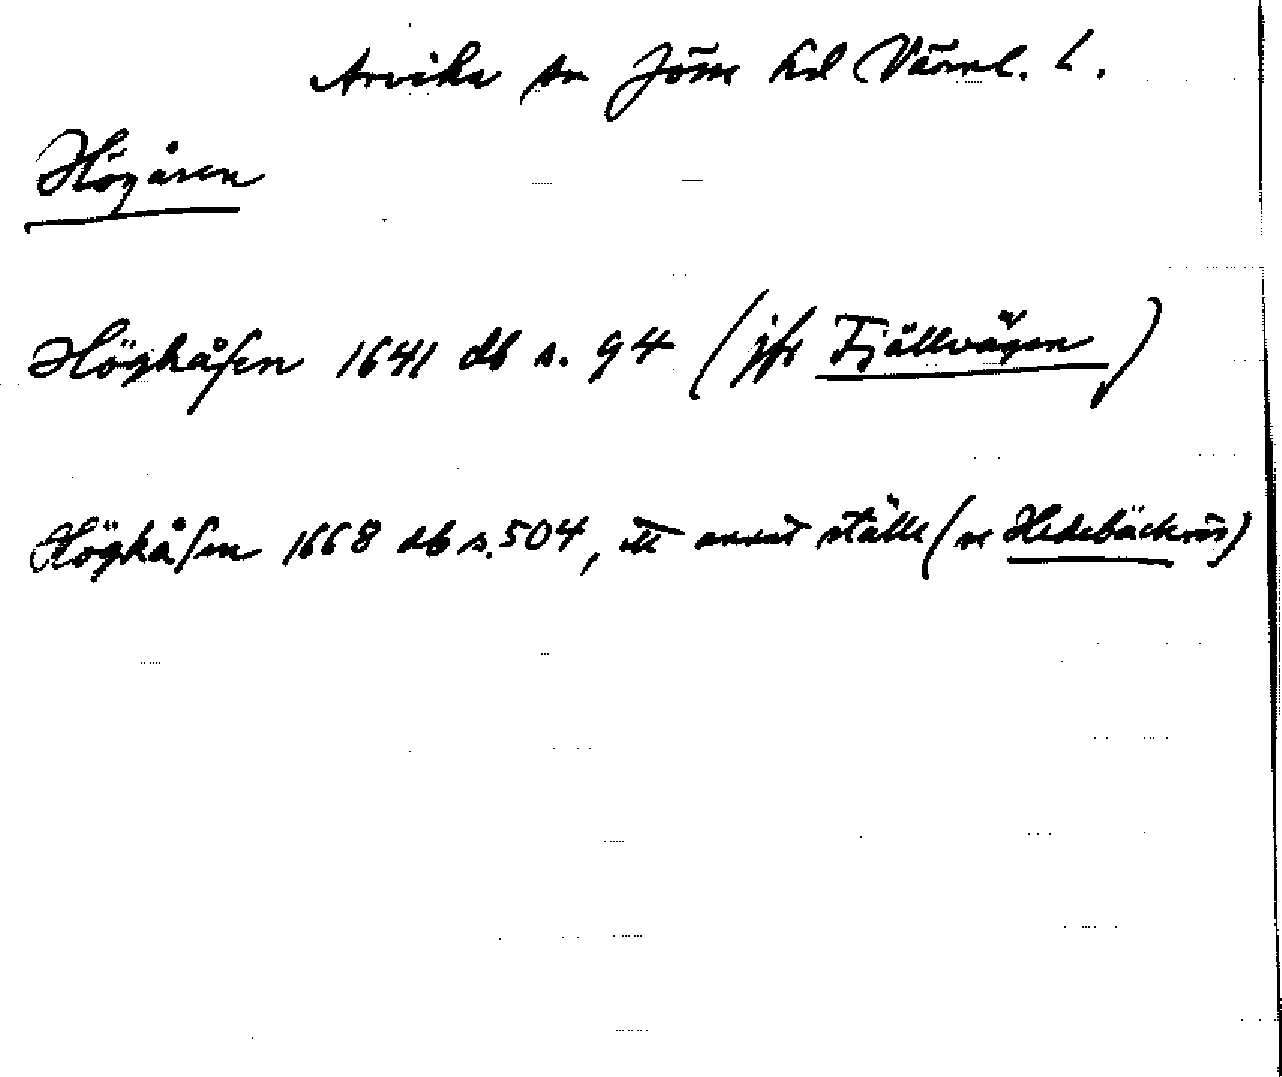 Arvika sn Jösse hd Värml. L.
Högåsen
Höghåsen 1641 db s. 94 (jfr Fjällvägen)
Höghåsen 1668 db s. 504, ett annat ställe (se Hedebäcken)